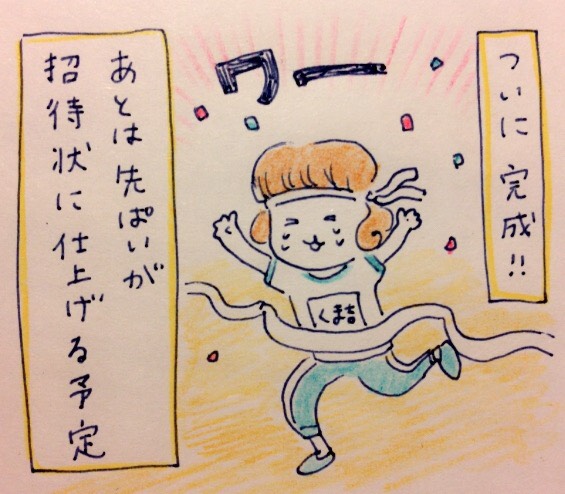 ついに 完成!!
ワー
くま吉
あとは先ぱいが
招待状に仕上げる予定